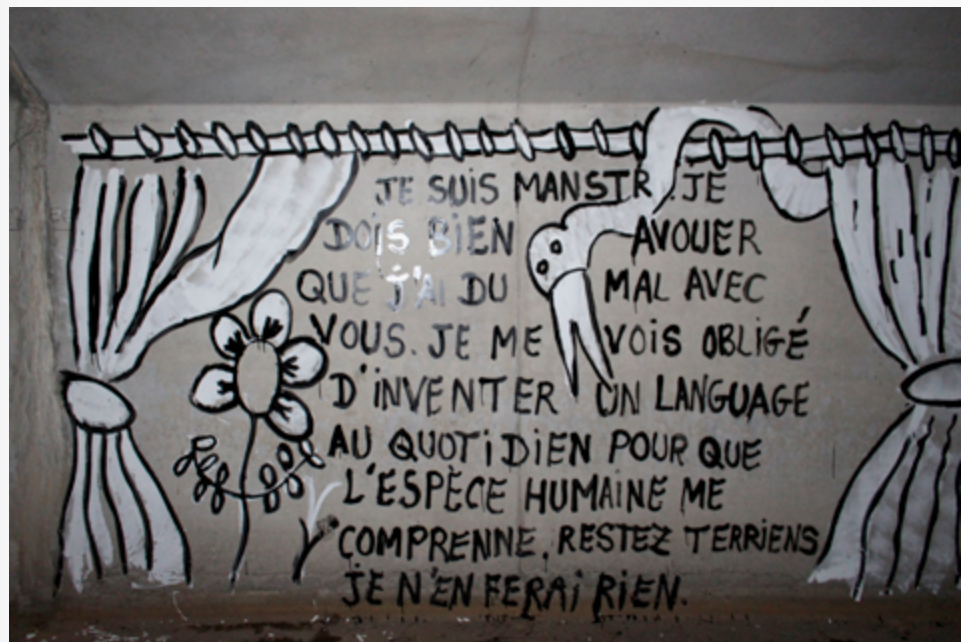 JE SUIS MANSTR. JE
DOIS BIEN AVOUER
QUE J'AI DU MAL AVEC
VOUS. JE ME VOIS OBLIGÉ
D'INVENTER UN LANGUAGE
AU QUOTIDIEN POUR QUE
L'ESPÈCE HUMAINE ME
COMPRENNE. RESTEZ TERRIENS
JE N'EN FERAI RIEN.